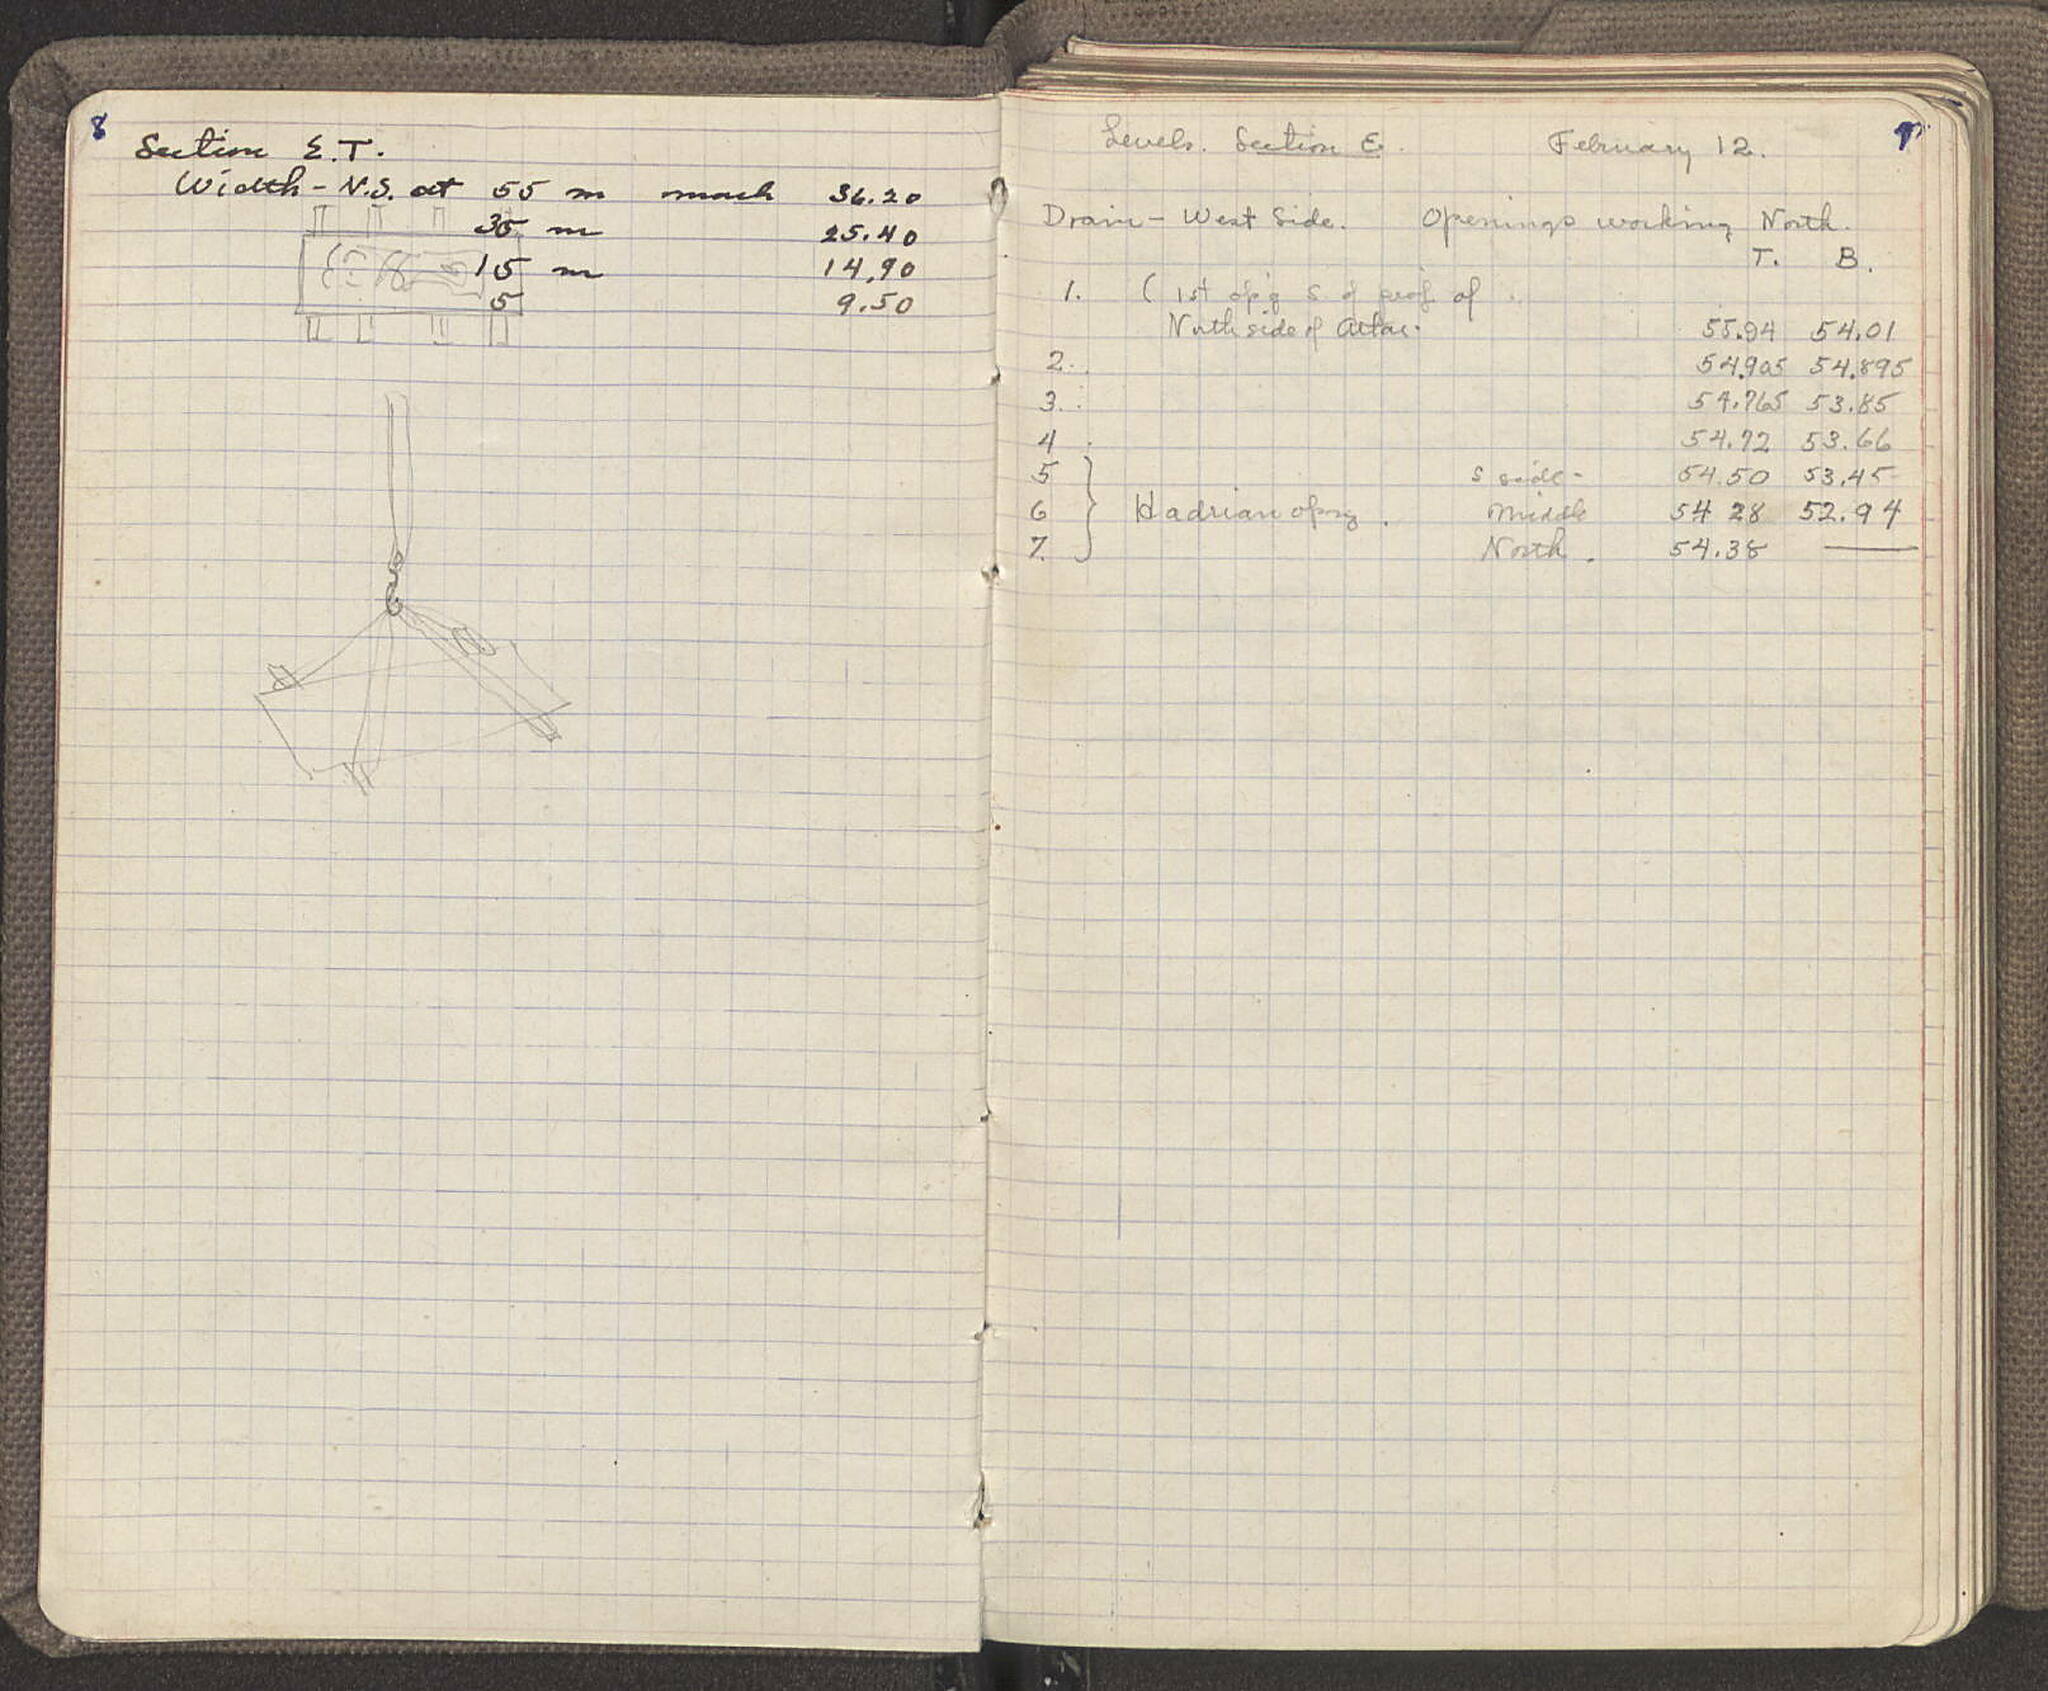 8
Section E.T.
Width - N.S. at 55 m mark 36.20
35 m 25.40
15 m 14.90
5 9.50
9
Levels. Section E. February 12.
Drain - West Side. Openings working North.
T. B.
1. ( 1st op'g S of of
North side of Altar. 55.94 54.01
2. 54.905 54.895
3. 54.765 53.85
4 54.72 53.66
5 S side - 54.50 53.45
6 Hadrian opng. Middle 54 28 52.94
7. North. 54.38 —